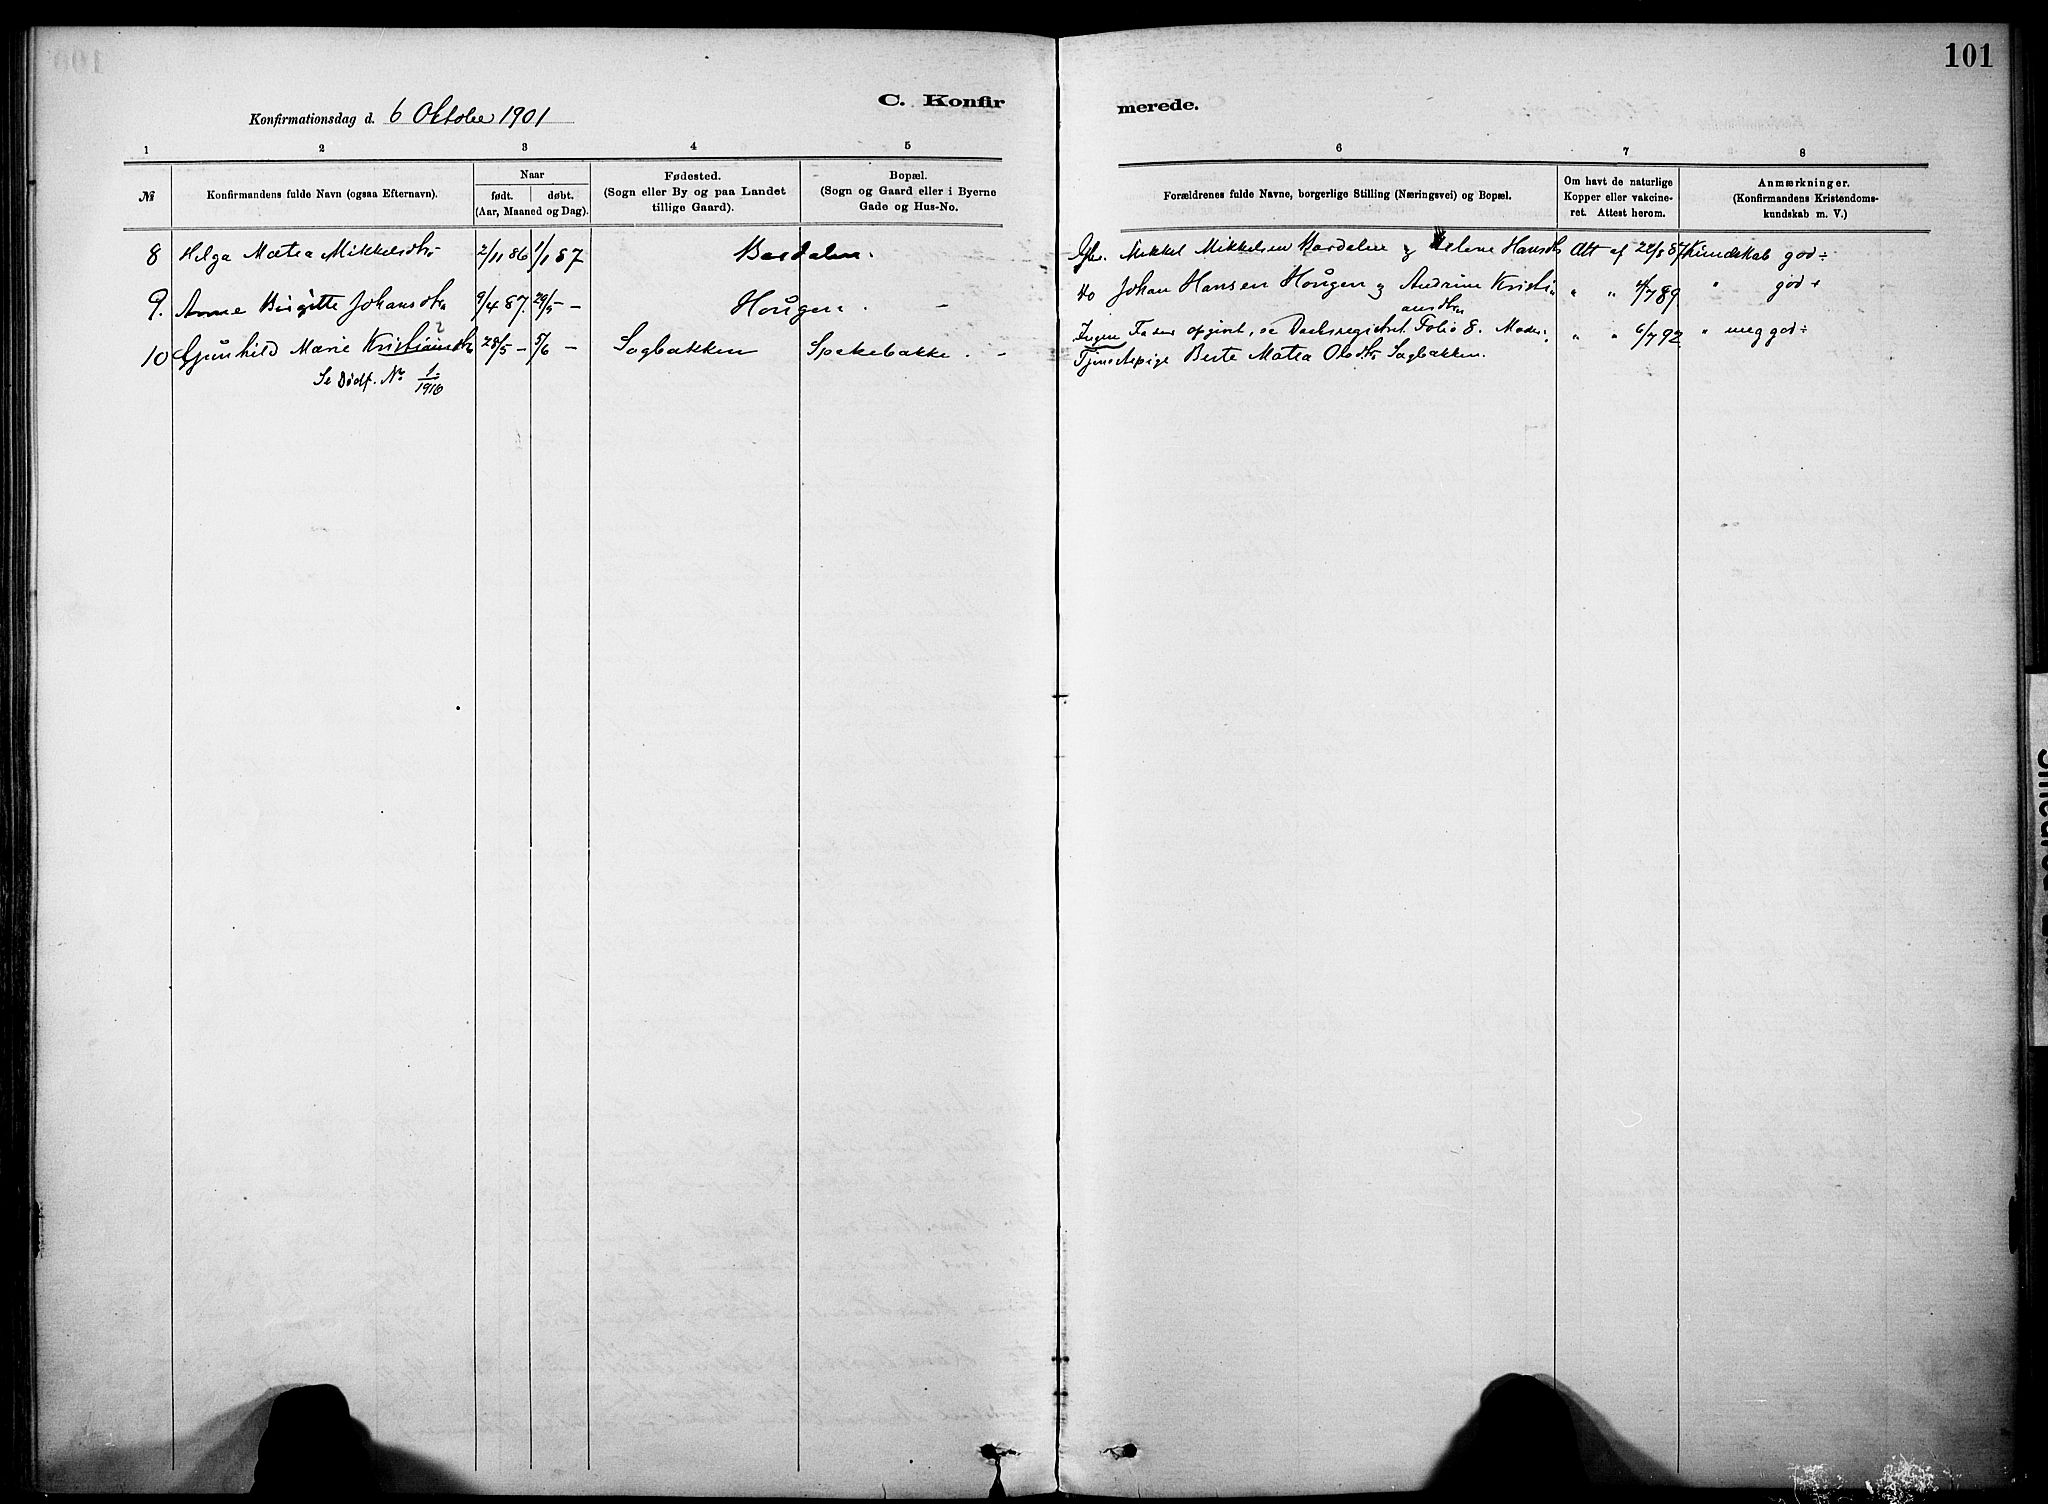 101
C. Konfir merede.
Konfirmationsdag d. 6 Oktober 1901
1 2 3 4 5 6 7 8
№ Konfirmandens fulde Navn (ogsaa Efternavn).
Naar
født. døbt.
(Aar, Maaned og Dag).
Fødested.
(Sogn eller By og paa Landet
tillige Gaard).
Bopæl.
(Sogn og Gaard eller i Byerne
Gade og Hus-No.
Forældrenes fulde Navne, borgerlige Stilling (Næringsvei) og Bopæl.
Om havt de naturlige
Kopper eller vakcine-
ret. Attest herom.
Anmærkninger.
(Konfirmandens Kristendoms-
kundskab m. V.)
8 Helga Matea Mikkelsdtr. 2/11 86 1/1 87 Bardalen. Gbr. Mikkel Mikkelsen Bardalen og Helene Hansdtr Att af 22/8 87 Kundskab god ÷
9. Anne Birgitte Johansdtr 9/4 87. 29/5 – Hougen. – Do Johan Hansen Hougen og Andrine Kristi- " " 4/7 89 " god +
ansdtr
10 Gunhild Marie Kristiansdtr ? 28/5 – 5/6 – Sagbakken Spekebakke. – Ingen Fader opgivet, se Daabsregistret Folio 8. Moder: " " 6/7 92 " meg god ÷
Tjenestepige Berte Matea Olsdtr Sagbakken.
Se Dødf. No 1/1916